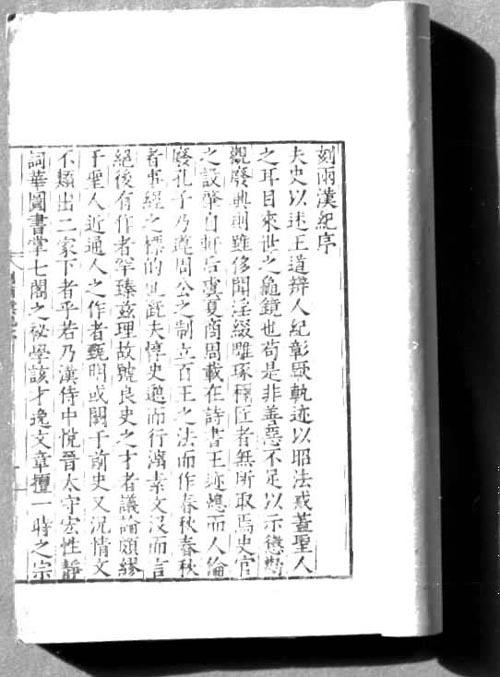 刻兩漢紀序
夫史以述王道辨人紀彰厥軌迹以昭法戒蓋聖人
之耳目來世之龜鏡也苟是非善惡不足以示懲勸
觀廢興則雖侈聞淫綴雕琢者無所取焉史官
之設肇自軒后虞夏商周載在詩書王迹熄而人倫
廢孔子乃遵周公之制立百王之法而作春秋春秋
者事經之標的也旣夫惇史邈而行漓素文沒而言
絕後有作者罕臻茲理故號良史之才者議論頗繆
于聖人近通人之作者甄明或闕于前史又況情文
不類出二家下者乎若乃漢侍中悅晉太守宏性靜
詞華圖書掌七閣之祕學該才逸文章擅一時之宗